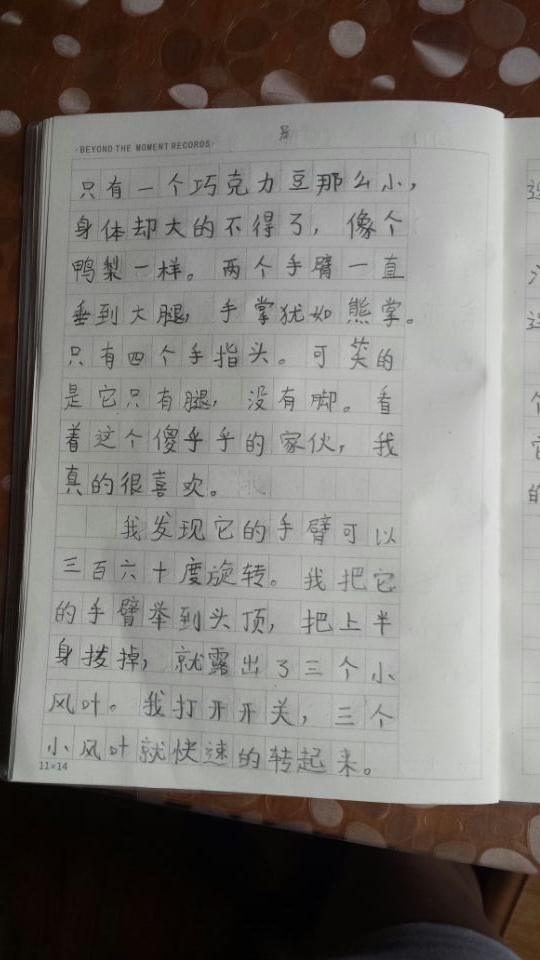 ·BEYOND THE MOMENT RECORDS·
只有一个巧克力豆那么小，
身体却大的不得了，像个
鸭梨一样。两个手臂一直
垂到大腿，手掌犹如熊掌。
只有四个手指头。可笑的
是它只有腿，没有脚。看
着这个傻乎乎的家伙，我
真的很喜欢。
我发现它的手臂可以
三百六十度旋转。我把它
的手臂举到头顶，把上半
身拔掉，就露出了三个小
风叶。我打开开关，三个
小风叶就快速的转起来。
11×14